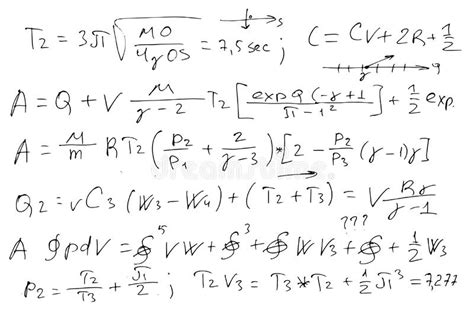 T₂ = 3π √(MO / 4gOS) = 7,5 sec ; C = CV + 2R + 1/2
A = Q + V M/(γ - 2) T₂ [exp Q (-γ + 1) / (π - 1²)] + 1/2 exp.
A = M/m R T₂ (P₂/P₁ + 2/(γ - 3)) * [2 - P₂/P₃ (γ - 1)γ]
Q₂ = νC₃ (W₃ - W₄) + (T₂ + T₃) = V Rγ/(γ - 1)
A ∮pdV = ∮⁵ VW + ∮³ + ∮ W V₃ + ∮ + 1/2 W₃ ???
P₂ = T₂/T₃ + π₁/2 ; T₂V₃ = T₃ * T₂ + 1/2 π³ = 7,277